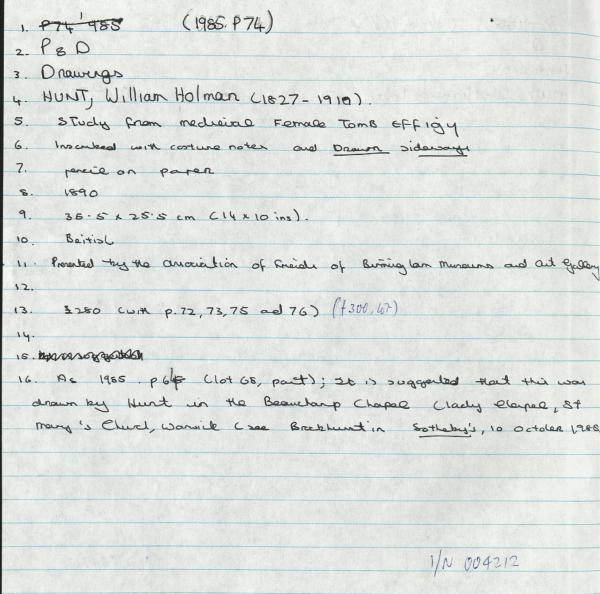 1. P74' 985 (1985.P74)
2. P & D
3. Drawings
4. HUNT, William Holman (1827-1910).
5. Study from medieval Female Tomb Effigy
6. Inscribed with costume notes and Drawn sideways
7. pencil on paper
8. 1890
9. 35.5 x 25.5 cm (14 x 10 ins).
10. British
11. Presented by the association of Friends of Birmingham Museums and Art Gallery
12.
13. £280 (with p.72, 73, 75 and 76)
14.
15.
16. As 1985. (lot 68, part); It is suggested that this was
drawn by Hunt in the Beauchamp Chapel (Lady Chapel, St
Mary's Church, Warwick (see Brockhurst in Sotheby's, 10 October 1985
I/N 004212